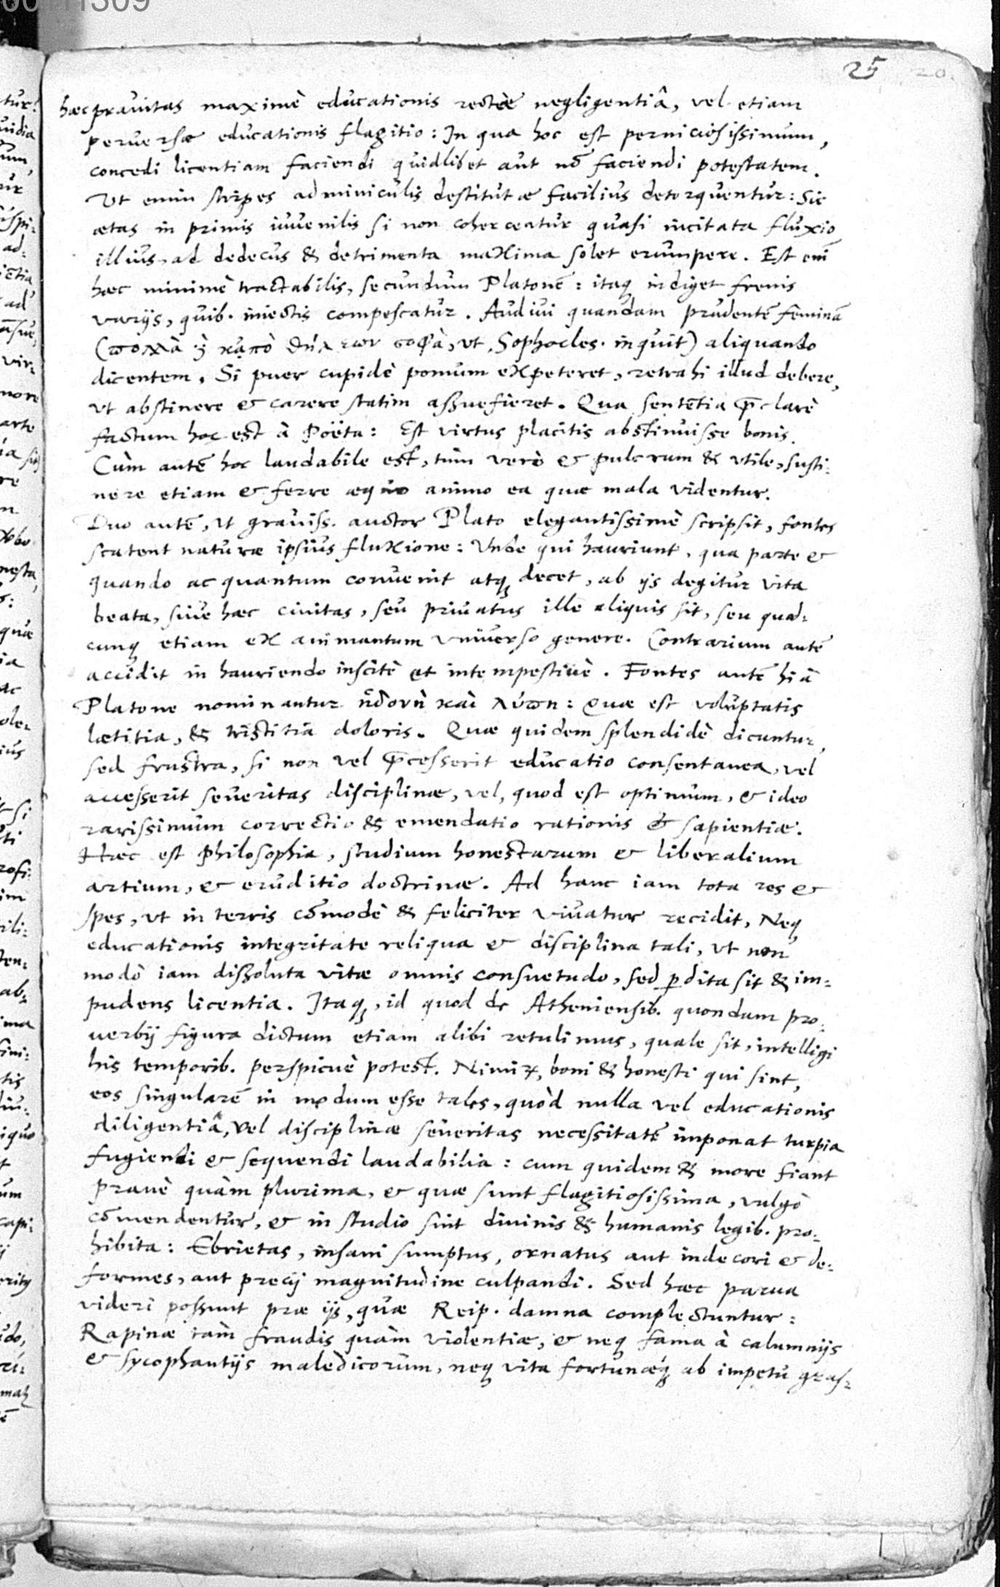 25 20.
hæc prauitas maximè educationis rectæ negligentiâ, vel etiam
peruersæ educationis flagitio: In qua hoc est perniciosissimum,
concedi licentiam faciendi quidlibet aut nō faciendi potestatem.
Ut enim stirpes adminiculis destitutæ facilius detorquentur: Sic
ætas in primis iuvenilis si non coherceatur quasi incitata fluxio
illius, ad dedecus & detrimenta maxima solet erumpere. Est em̄
hæc minimè tractabilis, secundum Platonē: itaq indiget frenis
varijs, quib. iniectis compescatur. Audiui quandam prudentē feminā
(πολλὰ καπὸ σοφὰ, ut Sophocles inquit) aliquando
dicentem, Si puer cupidè pomum expeteret, retrahi illud debere,
ut abstinere & carere statim assuefieret. Qua sententia p̄clarè
factum hoc est à Poëta: Est virtus placitis abstinuisse bonis.
Cùm autē hoc laudabile est, tùm verò & pulcrum & utile, susti-
nere etiam & ferre æquo animo ea quæ mala videntur.
Duo autē, ut grauiss. auctor Plato elegantissimè scripsit, fontes
scatent naturæ ipsius fluxione: Unde qui hauriunt, qua parte &
quando ac quantum convenit atq decet, ab ijs degitur vita
beata, siue hæc ciuitas, seu priuatus ille aliquis sit, seu quod-
cunq etiam ex animantum vniuerso genere. Contrarium autē
accidit in hauriendo inscitè et intempestiuè. Fontes autē hi à
Platone nominantur ἡδονὴ καὶ λύπη: quæ est voluptatis
lætitia, & tristitia doloris. Quæ quidem splendidè dicuntur,
sed frustra, si non vel p̄cesserit educatio consentanea, vel
accesserit seueritas disciplinæ, vel, quod est optimum, & ideo
rarissimum correctio & emendatio rationis & sapientiæ.
Hæc est Philosophia, studium honestarum & liberalium
artium, & eruditio doctrinæ. Ad hanc iam tota res &
spes, ut in terris cōmodè & feliciter viuatur recidit, Neq
educationis integritate reliqua & disciplina tali, ut non
modò iam dissoluta vitæ omnis consuetudo, sed p̱dita sit & im-
pudens licentia. Itaq, id quod de Atheniensib. quondam pro-
verbij figura dictum etiam alibi retulimus, quale sit, intelligi
his temporib. perspicuè potest. Nimiꝝ, boni & honesti qui sint,
eos singularē in modum esse tales, quòd nulla vel educationis
diligentiâ, vel disciplinæ seueritas necessitatē imponat turpia
fugiendi & sequendi laudabilia: cum quidem & more fiant
prauè quàm plurima, & quæ sunt flagitiosissima, vulgò
cōmendentur, & in studio sint diuinis & humanis legib. pro-
hibita: Ebrietas, insani sumptus, ornatus aut indecori & de-
formes, aut precij magnitudine culpandi. Sed hæc parua
videri possunt præ ijs, quæ Reip. damna complectuntur:
Rapinæ tàm fraudis quàm violentiæ, & neq fama à calumnijs
& sycophantijs maledicorum, neq vita fortunæq́ ab impetu gras-